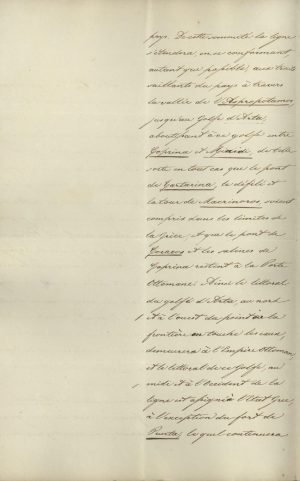 pays. De cette sommité la ligne
s'étendra, en se conformant
autant que possible, aux traits
saillants du pays à travers
la vallée de l'Aspropotamos,
jusqu'au Golfe d'Arta,
aboutissant à ce golfe entre
Coprina et de telle
sorte en tout cas que le pont
de Tartarina, le défilé et
la tour de Macrinoros, soient
compris dans les limites de
la Grèce, et que le pont de
et les salines de
Coprina restent à la Porte
Ottomane. Ainsi le littoral
du golfe d'Arta, au nord
et à l'ouest du point où la
frontière en touche les eaux,
demeurera à l'Empire Ottoman,
et le littoral de ce Golfe, au
midi et à l'occident de la
ligne est assigné à l'Etat Grec,
à l'exception du fort de
Punta, lequel continuera